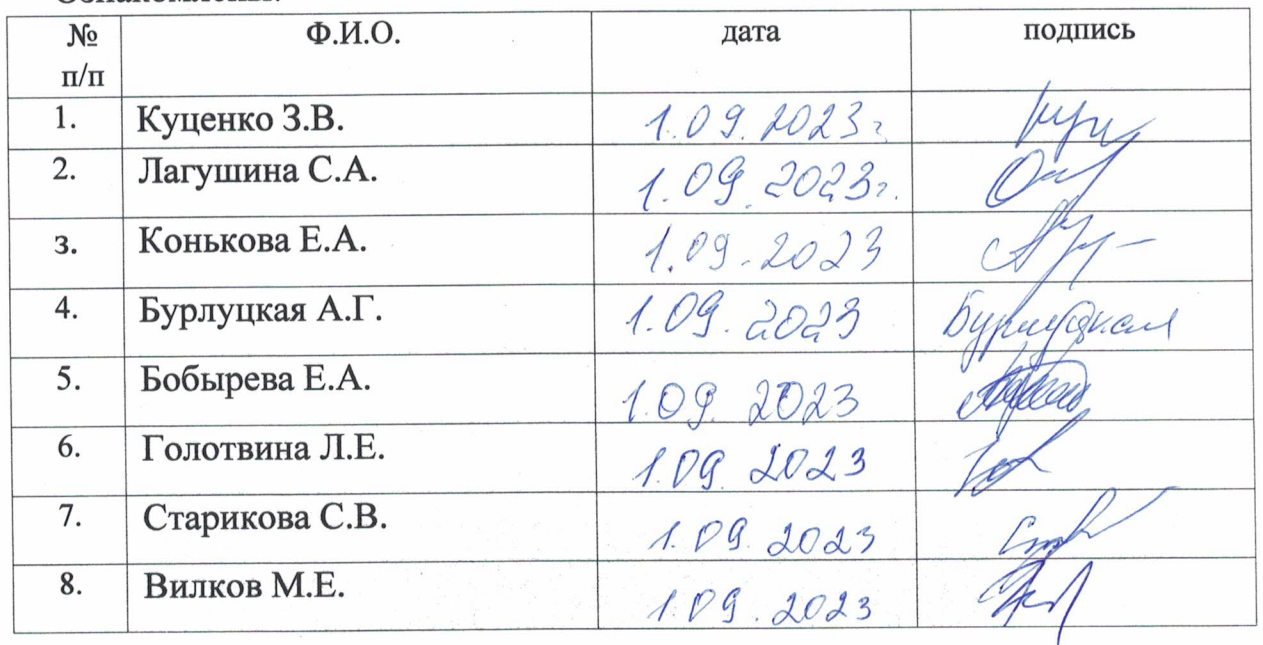 № п/п Ф.И.О. дата подпись
1. Куценко З.В. 1.09.2023г
2. Лагушина С.А. 1.09.2023г.
3. Конькова Е.А. 1.09.2023
4. Бурлуцкая А.Г. 1.09.2023 Бурлуцкая
5. Бобырева Е.А. 1.09.2023
6. Голотвина Л.Е. 1.09.2023
7. Старикова С.В. 1.09.2023
8. Вилков М.Е. 1.09.2023